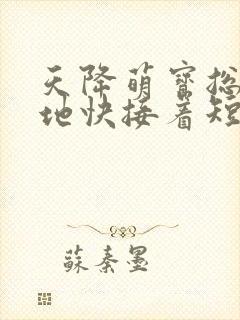 天降萌寶總
地快接着短
蘇秦墨